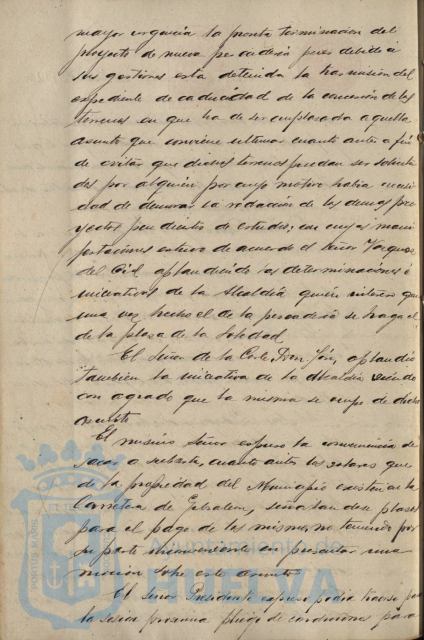 mayor urgencia la pronta terminacion del
proyecto de nueva pescaderia pues debido á
sus gestiones esta detenida la trasmision del
expediente de caducidad de la concesion de los
terrenos en que ha de ser emplazada aquella
asunto que conviene ultimar cuanto antes á fin
de evitar que dichos terrenos puedan ser solicita
dos por alguien por cuyo motivo habia necesi
dad de demorar la redaccion de los demas pro
yectos pendientes de estudio; con cuyas mani
festaciones estuvo de acuerdo el Señor Vazquez
del Cid aplaudiendo las determinaciones é
iniciativas de la Alcaldia quien interesó que
una vez hecho el de la pescaderia se haga el
de la plaza de la Soledad.
El Señor de la Corte Don José, aplaudió
tambien la iniciativa de la Alcaldia viendo
con agrado que la misma se ocupe de dicho
asunto
El mismo Señor expuso la conveniencia de
sacar á subasta, cuanto antes los solares que
de la propiedad del Municipio existen en la
Carretera de Gibraleon, señalandose plazos
para el pago de los mismos, no teniendo por
su parte inconveniente en presentar una
mocion sobre este asunto
El Señor Presidente expuso podia traerse para
la sesion proxima pliego de condiciones para
Ayuntamiento de
HUELVA
PORTUS MARIS